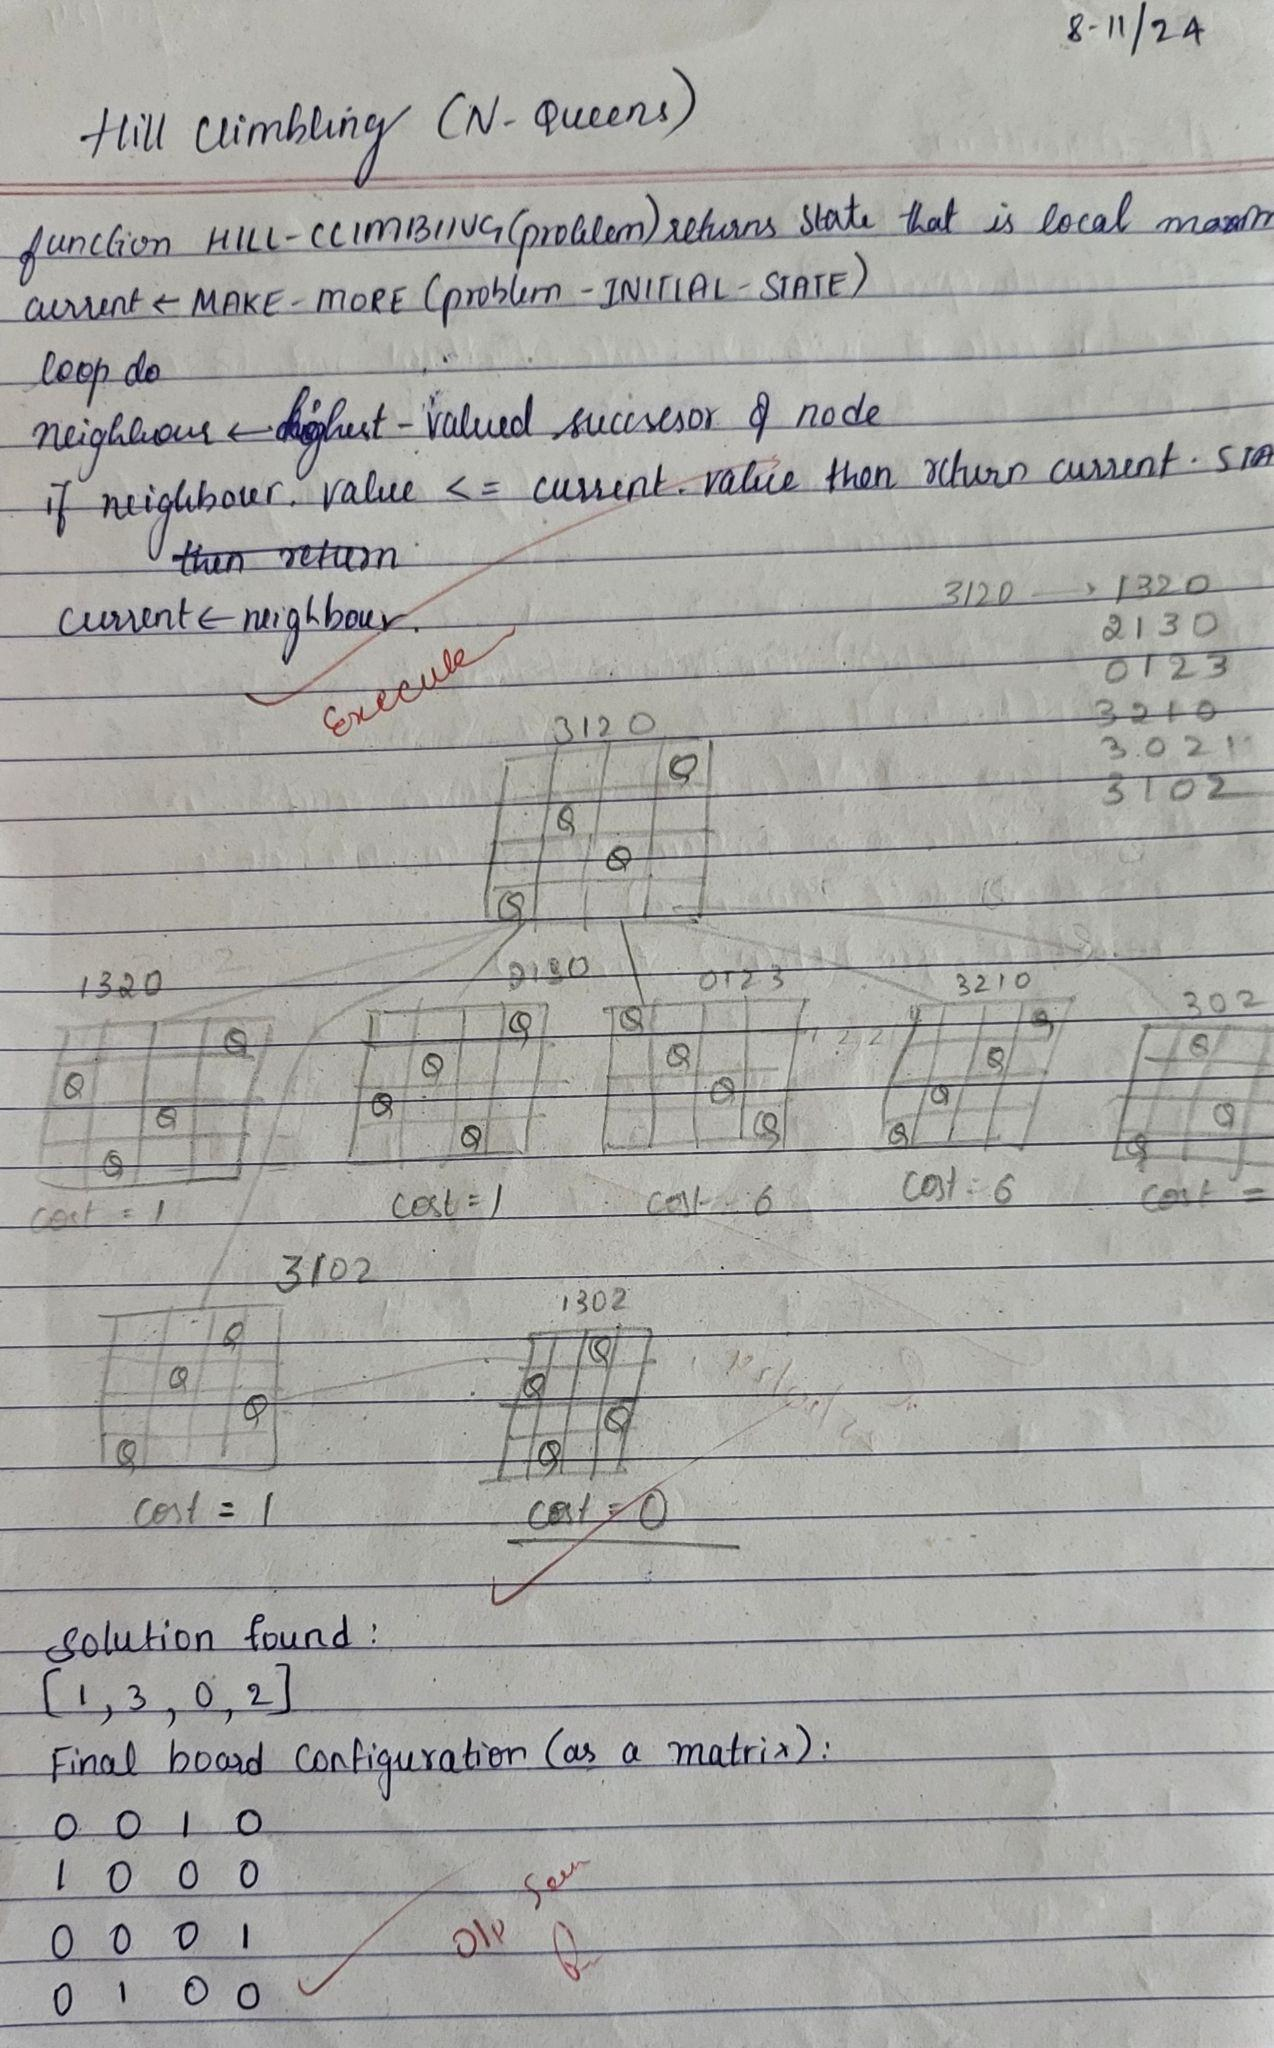 8-11/24
Hill Climbling (N-Queens)
function HILL-CLIMBING (problem) returns state that is local maxim
current ← MAKE-MORE (problem - INITIAL-STATE)
loop do
neighbour ← highest-valued succsesor of node
if neighbour. value <= current. value then return current. STA
then return
current ← neighbour.
Execute
3120 → 1320
2130
0123
3210
3021
3102
3120
Q
Q
Q
Q
1320 2130 0123 3210 302
Q Q Q Q Q
Q Q Q Q
Q Q Q Q Q
Q Q Q Q Q
cost = 1 cost = 1 cost = 6 cost = 6 cost =
3102 1302
Q Q
Q Q
Q Q
Q Q
cost = 1 cost = 0
solution found:
[1, 3, 0, 2]
Final board configuration (as a matrix):
0 0 1 0
1 0 0 0
0 0 0 1
0 1 0 0
O/P